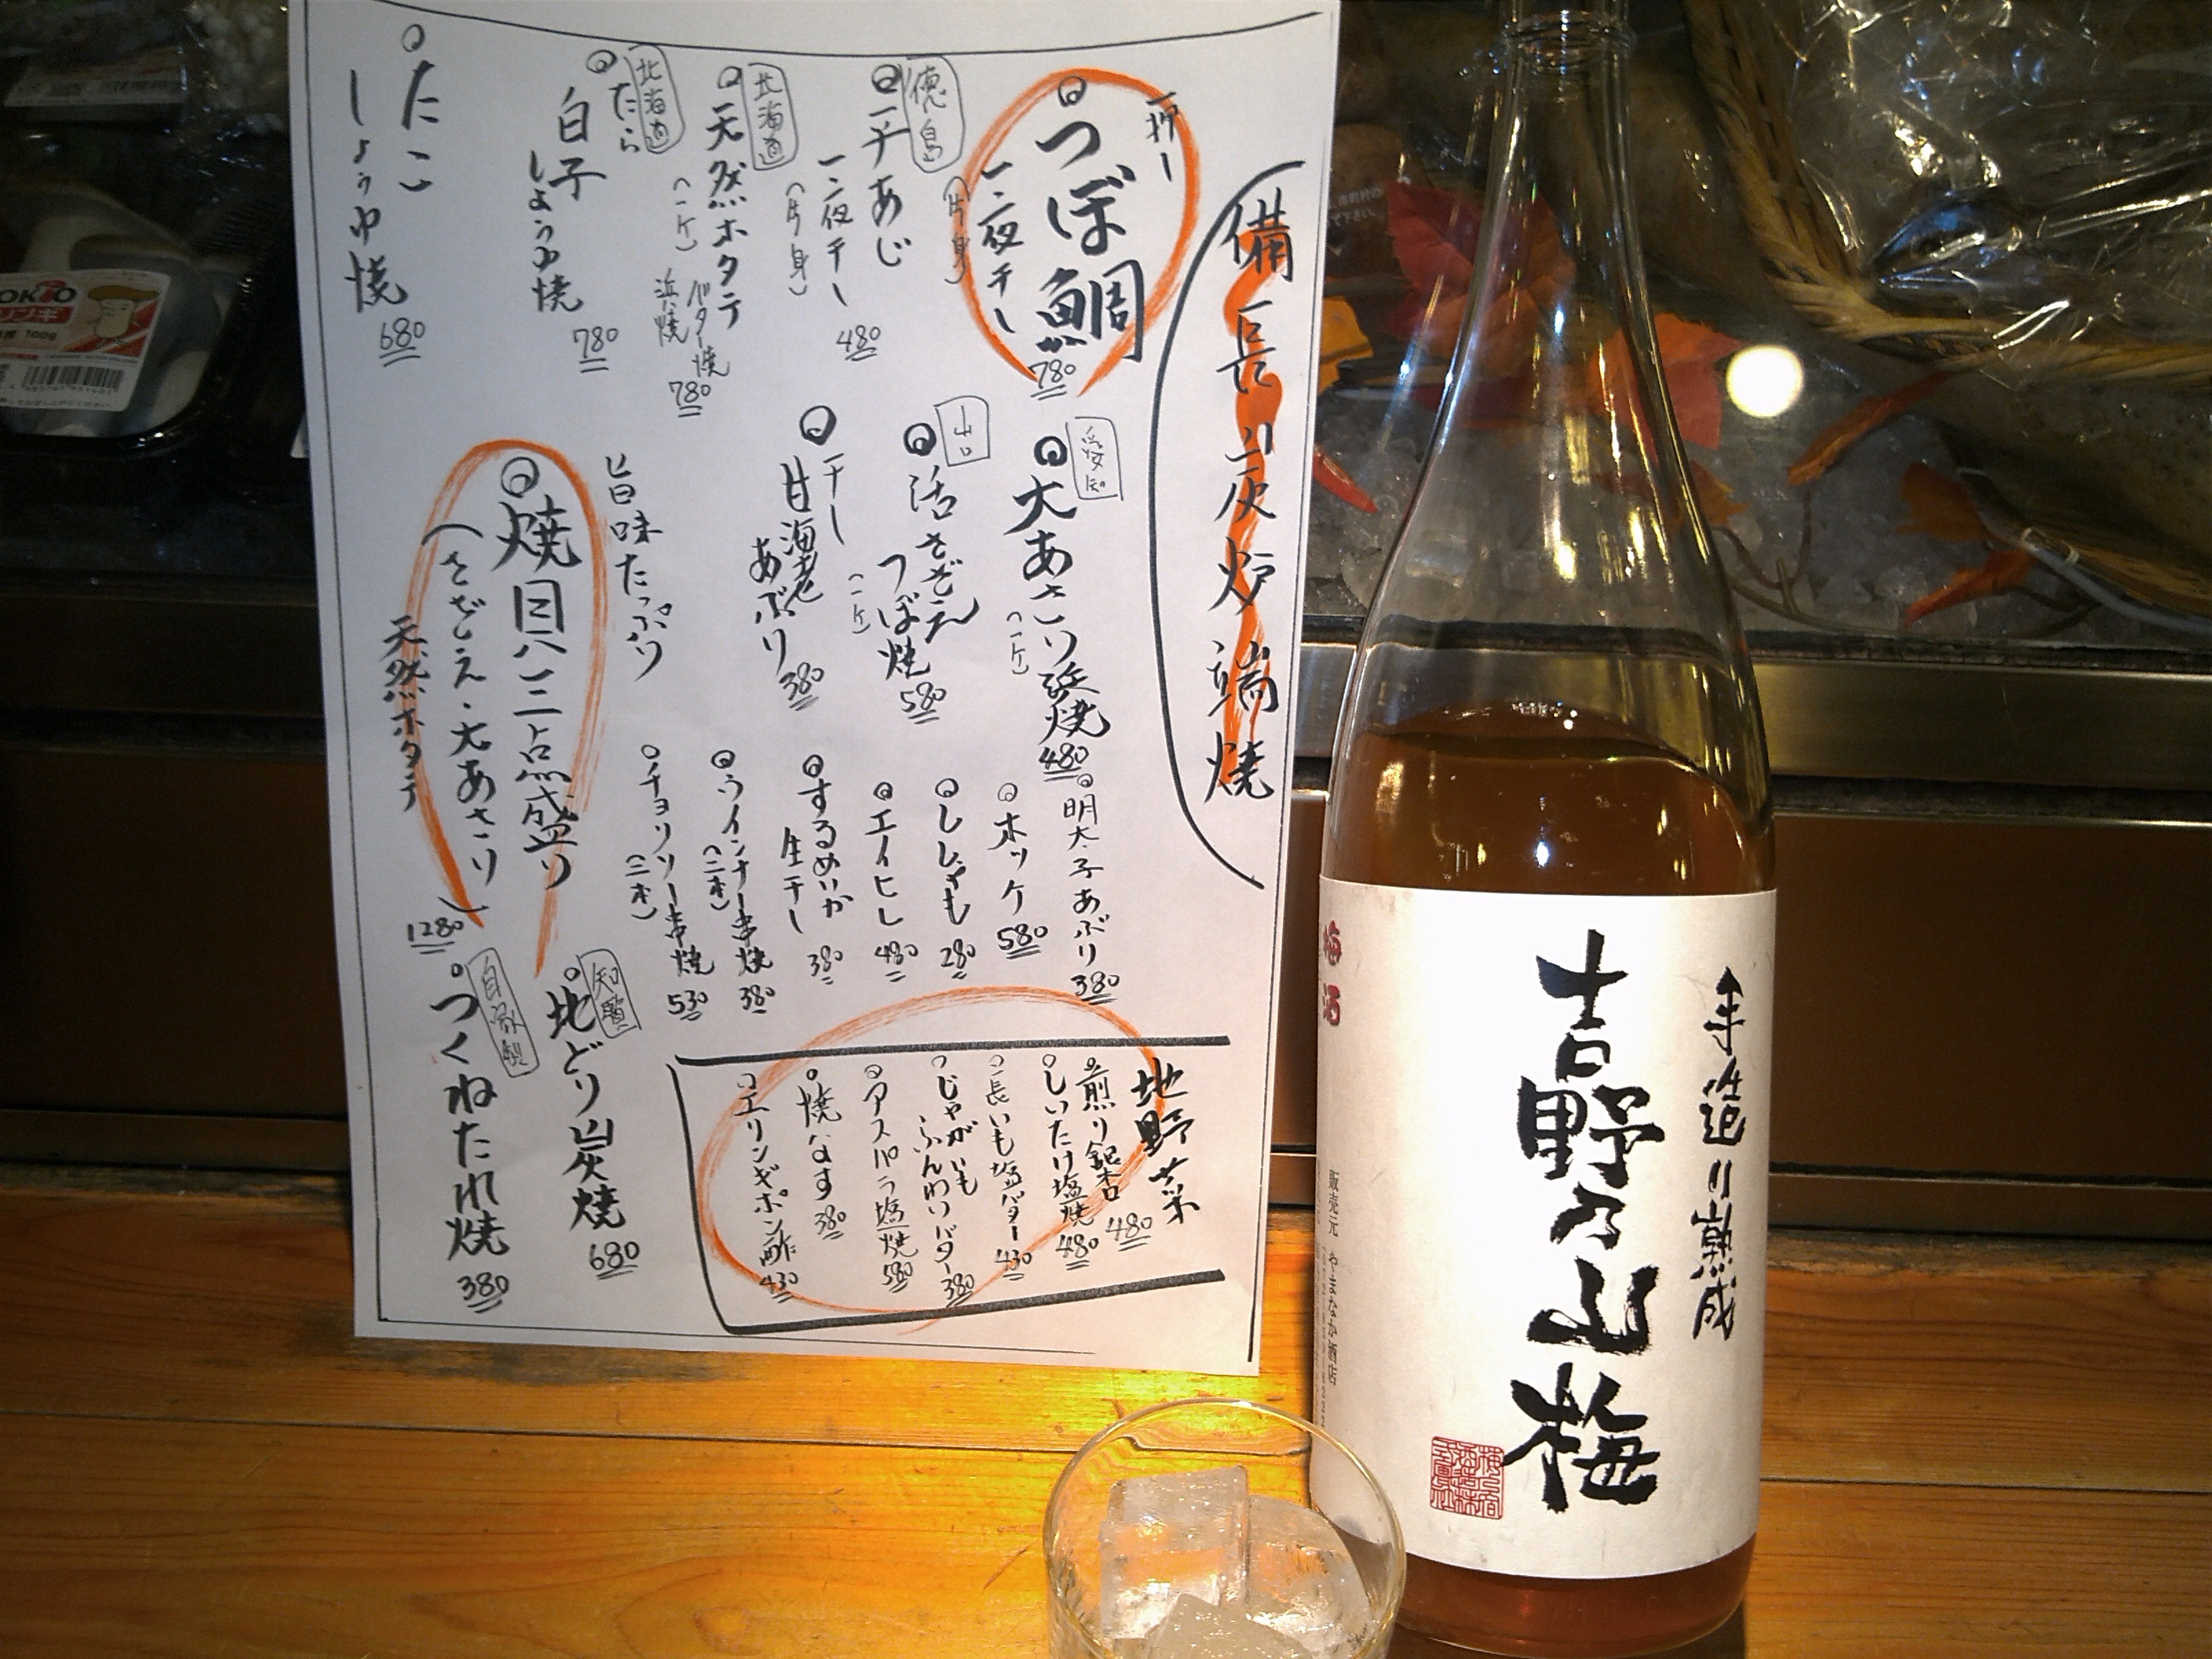 備長炭炉端焼
一押し
つぼ鯛
一夜干し
(片身)
780
徳島
平あじ
一夜干し
(片身)
480
北海道
天然ホタテ
(一ケ)
バター焼
浜焼
780
北海道
たら
白子
しょうゆ焼
780
たこ
しょうゆ焼
680
愛知
大あさり浜焼
(一ケ)
480
山口
活さざえ
つぼ焼
(一ケ)
580
干し
甘海老
あぶり
380
旨味たっぷり
焼貝三点盛り
(さざえ・大あさり
天然ホタテ)
1280
明太子あぶり
380
ホッケ
580
ししゃも
280
エイヒレ
480
するめいか
生干し
380
ウインナー串焼
(二本)
380
チョリソー串焼
(三本)
530
知覧
地どり炭焼
680
自家製
つくねたれ焼
380
地野菜
煎り銀杏
480
しいたけ塩焼
480
長いも塩バター
430
じゃがいも
ふんわりバター
380
アスパラ塩焼
580
焼なす
380
エリンギポン酢
430
手造り熟成
吉野乃山梅
梅酒
販売元 やまなか酒店
100g